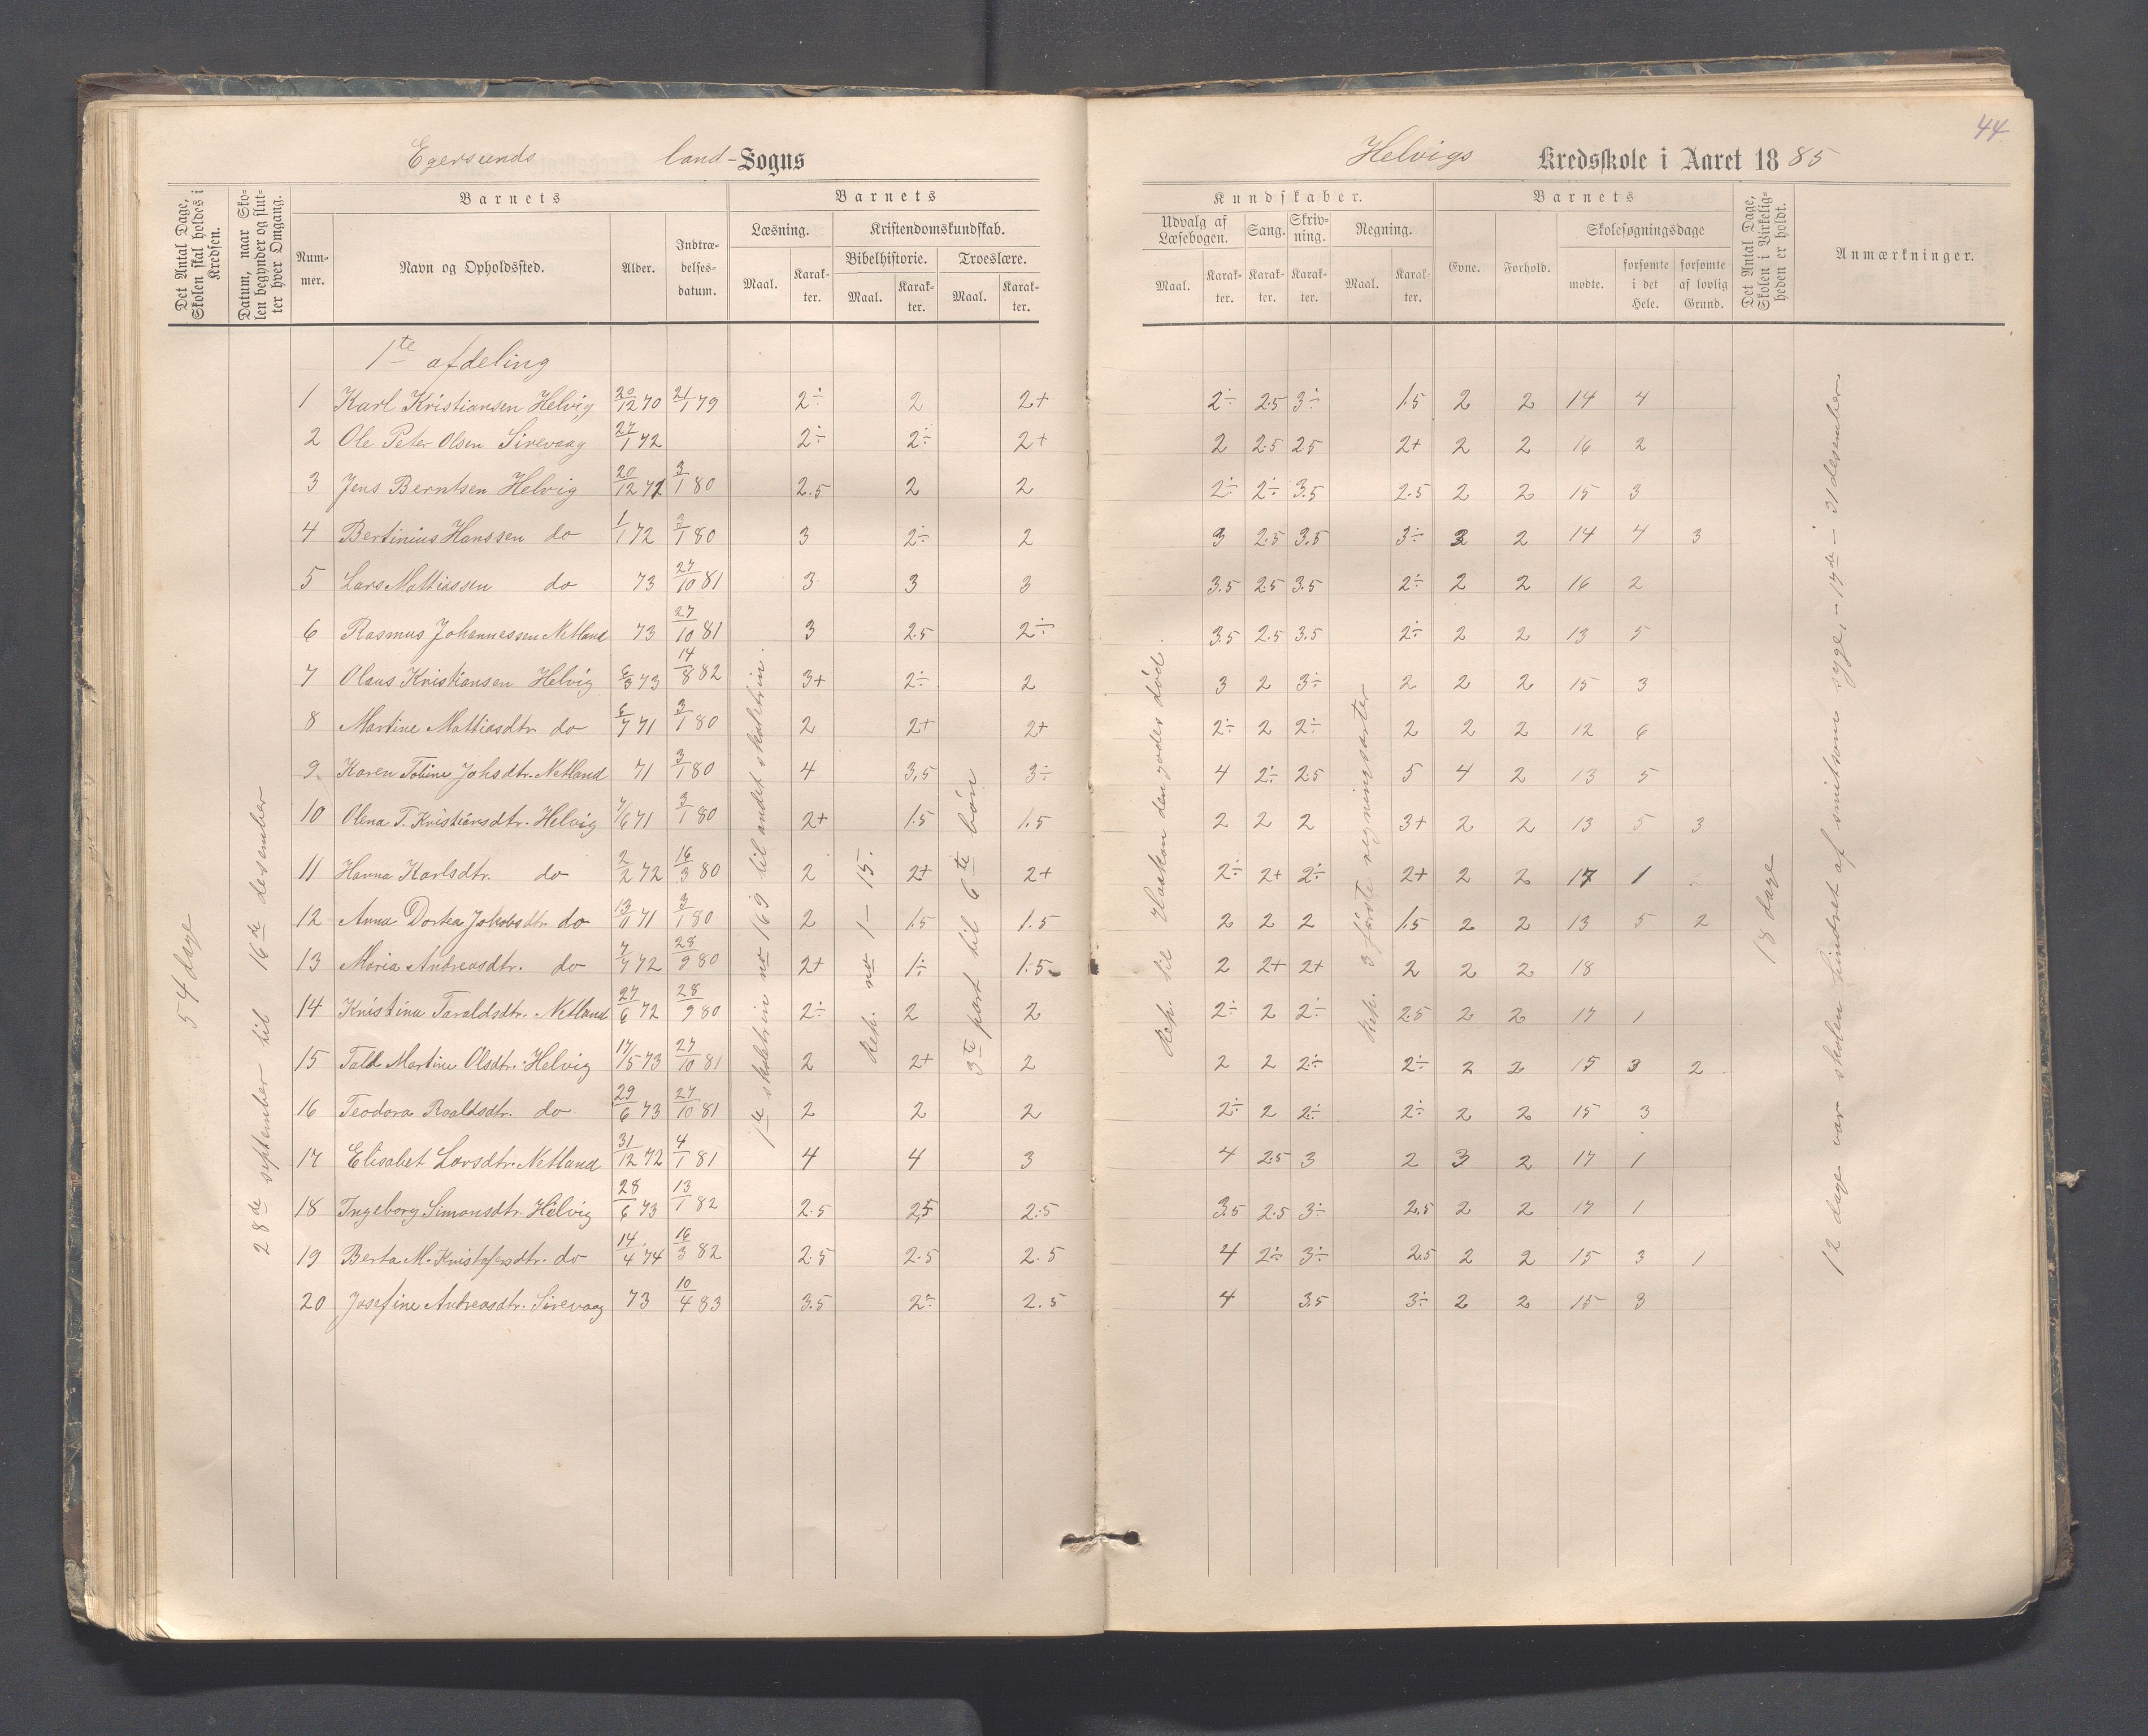 44
Egersunds land-Sogns
Helvigs Kredsskole i Aaret 1885
Det Antal Dage, Skolen skal holdes i Kredsen.
Datum, naar Skolen begynder og slutter hver Omgang.
Barnets
Nummer.
Navn og Opholdssted.
Alder.
Indtrædelsesdatum.
Barnets
Læsning.
Maal.
Karakter.
Kristendomskundskab.
Bibelhistorie.
Maal.
Karakter.
Troeslære.
Maal.
Karakter.
Kundskaber.
Udvalg af Læsebogen.
Maal.
Karakter.
Sang.
Karakter.
Skrivning.
Karakter.
Regning.
Maal.
Karakter.
Barnets
Evne.
Forhold.
Skolesøgningsdage
mødte.
forsømte i det Hele.
forsømte af lovlig Grund.
Det Antal Dage, Skolen i Virkeligheden er holdt.
Anmærkninger.
54 dage
28de september til 16de desember
1te afdeling
1 Karl Kristiansen Helvig 20/12 70 21/1 79 2÷ 2 2+ 2÷ 2.5 3÷ 1.5 2 2 14 4
2 Ole Peter Olsen Sirevaag 27/1 72 2÷ 2÷ 2+ 2 2.5 2.5 2+ 2 2 16 2
3 Jens Berntsen Helvig 20/12 72 3/1 80 2.5 2 2 2÷ 2÷ 3.5 2.5 2 2 15 3
4 Bertinius Hanssen do 1/1 72 3/1 80 3 2÷ 2 3 2.5 3.5 3÷ 3 2 14 4 3
5 Lars Mattiassen do 73 27/10 81 3 3 3 3.5 2.5 3.5 2÷ 2 2 16 2
6 Rasmus Johannessen Netland 73 27/10 81 3 2.5 2÷ 3.5 2.5 3.5 2÷ 2 2 13 5
7 Olaus Kristiansen Helvig 6/3 73 14/8 82 3+ 2÷ 2 3 2 3÷ 2 2 2 15 3
8 Martine Mattiasdtr do 6/7 71 3/1 80 2 2+ 2+ 2÷ 2 2÷ 2 2 2 12 6
9 Karen Tobine Johsdtr. Netland 71 3/1 80 4 3.5 3÷ 4 2÷ 2.5 5 4 2 13 5
10 Olena T. Kristiansdtr. Helvig 7/6 71 3/1 80 2+ 1.5 1.5 2 2 2 3+ 2 2 13 5 3
11 Hanna Karlsdtr. do 2/2 72 16/3 80 2 2+ 2+ 2÷ 2+ 2÷ 2+ 2 2 17 1
12 Anna Dortea Jakobsdtr. do 13/11 71 3/1 80 2 1.5 1.5 2 2 2 1.5 2 2 13 5 2
13 Maria Andreasdtr. do 7/7 72 28/9 80 2+ 1÷ 1.5 2 2+ 2+ 2 2 2 18
14 Kristine Taraldsdtr. Netland 27/6 72 28/9 80 2÷ 2 2 2÷ 2 2÷ 2.5 2 2 17 1
15 Tald Martine Olsdtr. Helvig 17/5 73 27/10 81 2 2+ 2 2 2 2÷ 2÷ 2 2 15 3 2
16 Teodora Roaldsdtr. do 29/6 73 27/10 81 2 2 2 2÷ 2 2÷ 2÷ 2 2 15 3
17 Elisabet Larsdtr. Netland 31/12 72 4/1 81 4 4 3 4 2.5 3 2 3 2 17 1
18 Ingeborg Simonsdtr. Helvig 28/6 73 13/1 82 2.5 2.5 2.5 3.5 2.5 3÷ 2.5 2 2 17 1
19 Berta M. Kristofersdtr. do 14/4 74 16/3 82 2.5 2.5 2.5 4 2÷ 3÷ 2.5 2 2 15 3 1
20 Josefine Andreasdtr. Sirevaag 73 10/4 83 3.5 2÷ 2.5 4 3.5 3÷ 2 2 15 3
1te skoletrin no 169 til andet skoletrin.
Rep. no 1–15.
3te part til 6te bön
Rep. til Haakon den godes död.
Rep. 3 förste regningsarter
18 dage
12 dage var skolen hindret af smitsom syge, – 17de – 31 desember